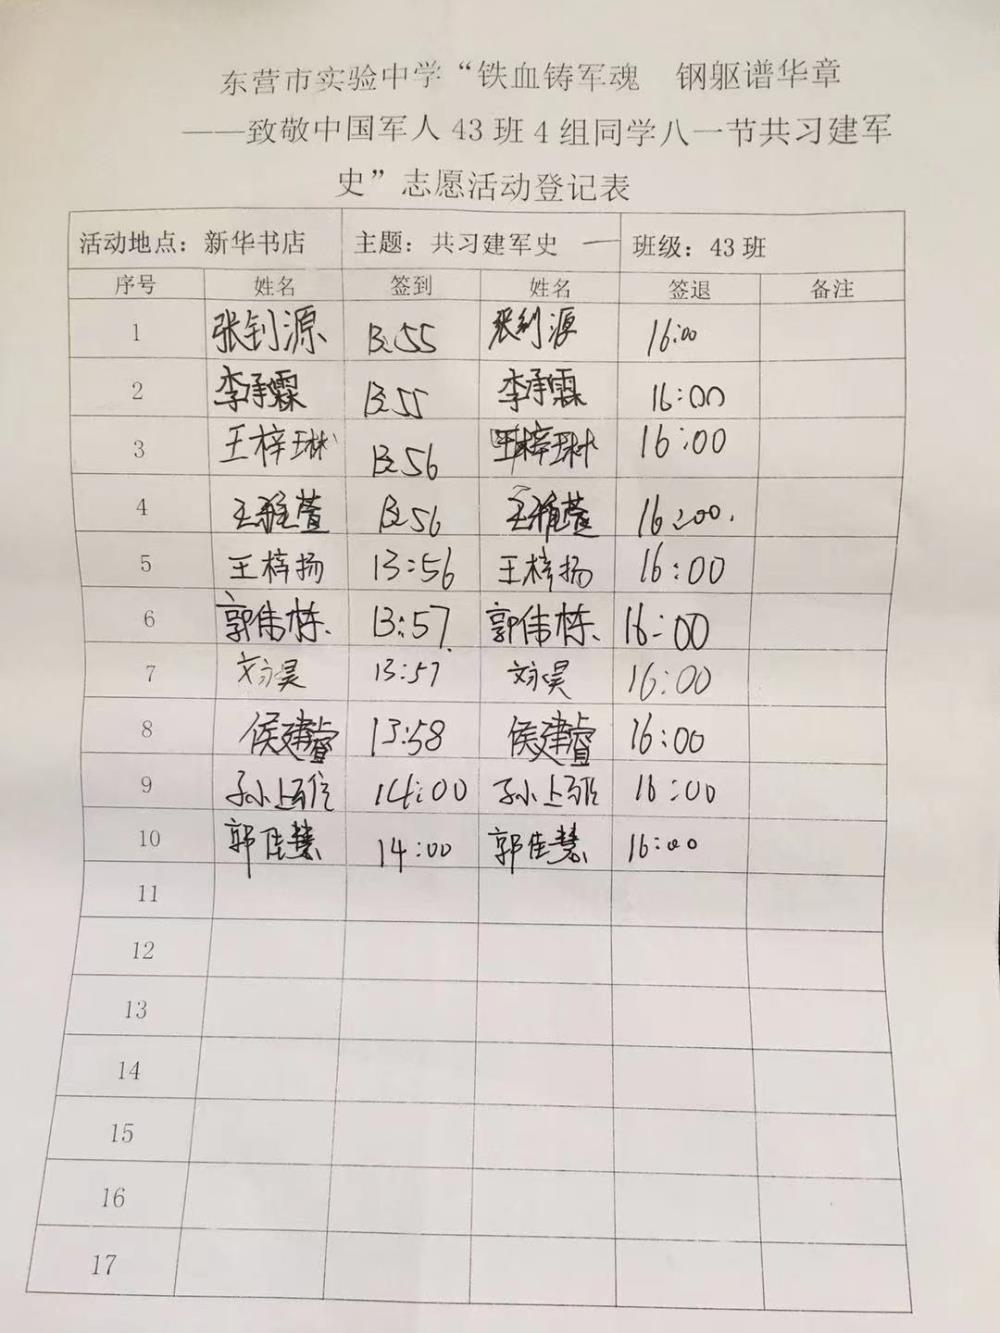 东营市实验中学“铁血铸军魂 钢躯谱华章
——致敬中国军人43班4组同学八一节共习建军
史”志愿活动登记表
活动地点：新华书店 主题：共习建军史 班级：43班
序号 姓名 签到 姓名 签退 备注
1 张钊源 13:55 张钊源 16:00
2 李承霖 13:55 李承霖 16:00
3 王梓琳 13:56 王梓琳 16:00
4 王雅萱 13:56 王雅萱 16:00.
5 王梓扬 13:56 王梓扬 16:00
6 郭伟栋 13:57 郭伟栋 16:00
7 13:57 16:00
8 侯建睿 13:58 侯建睿 16:00
9 14:00 16:00
10 郭佳慧 14:00 郭佳慧 16:00
11
12
13
14
15
16
17